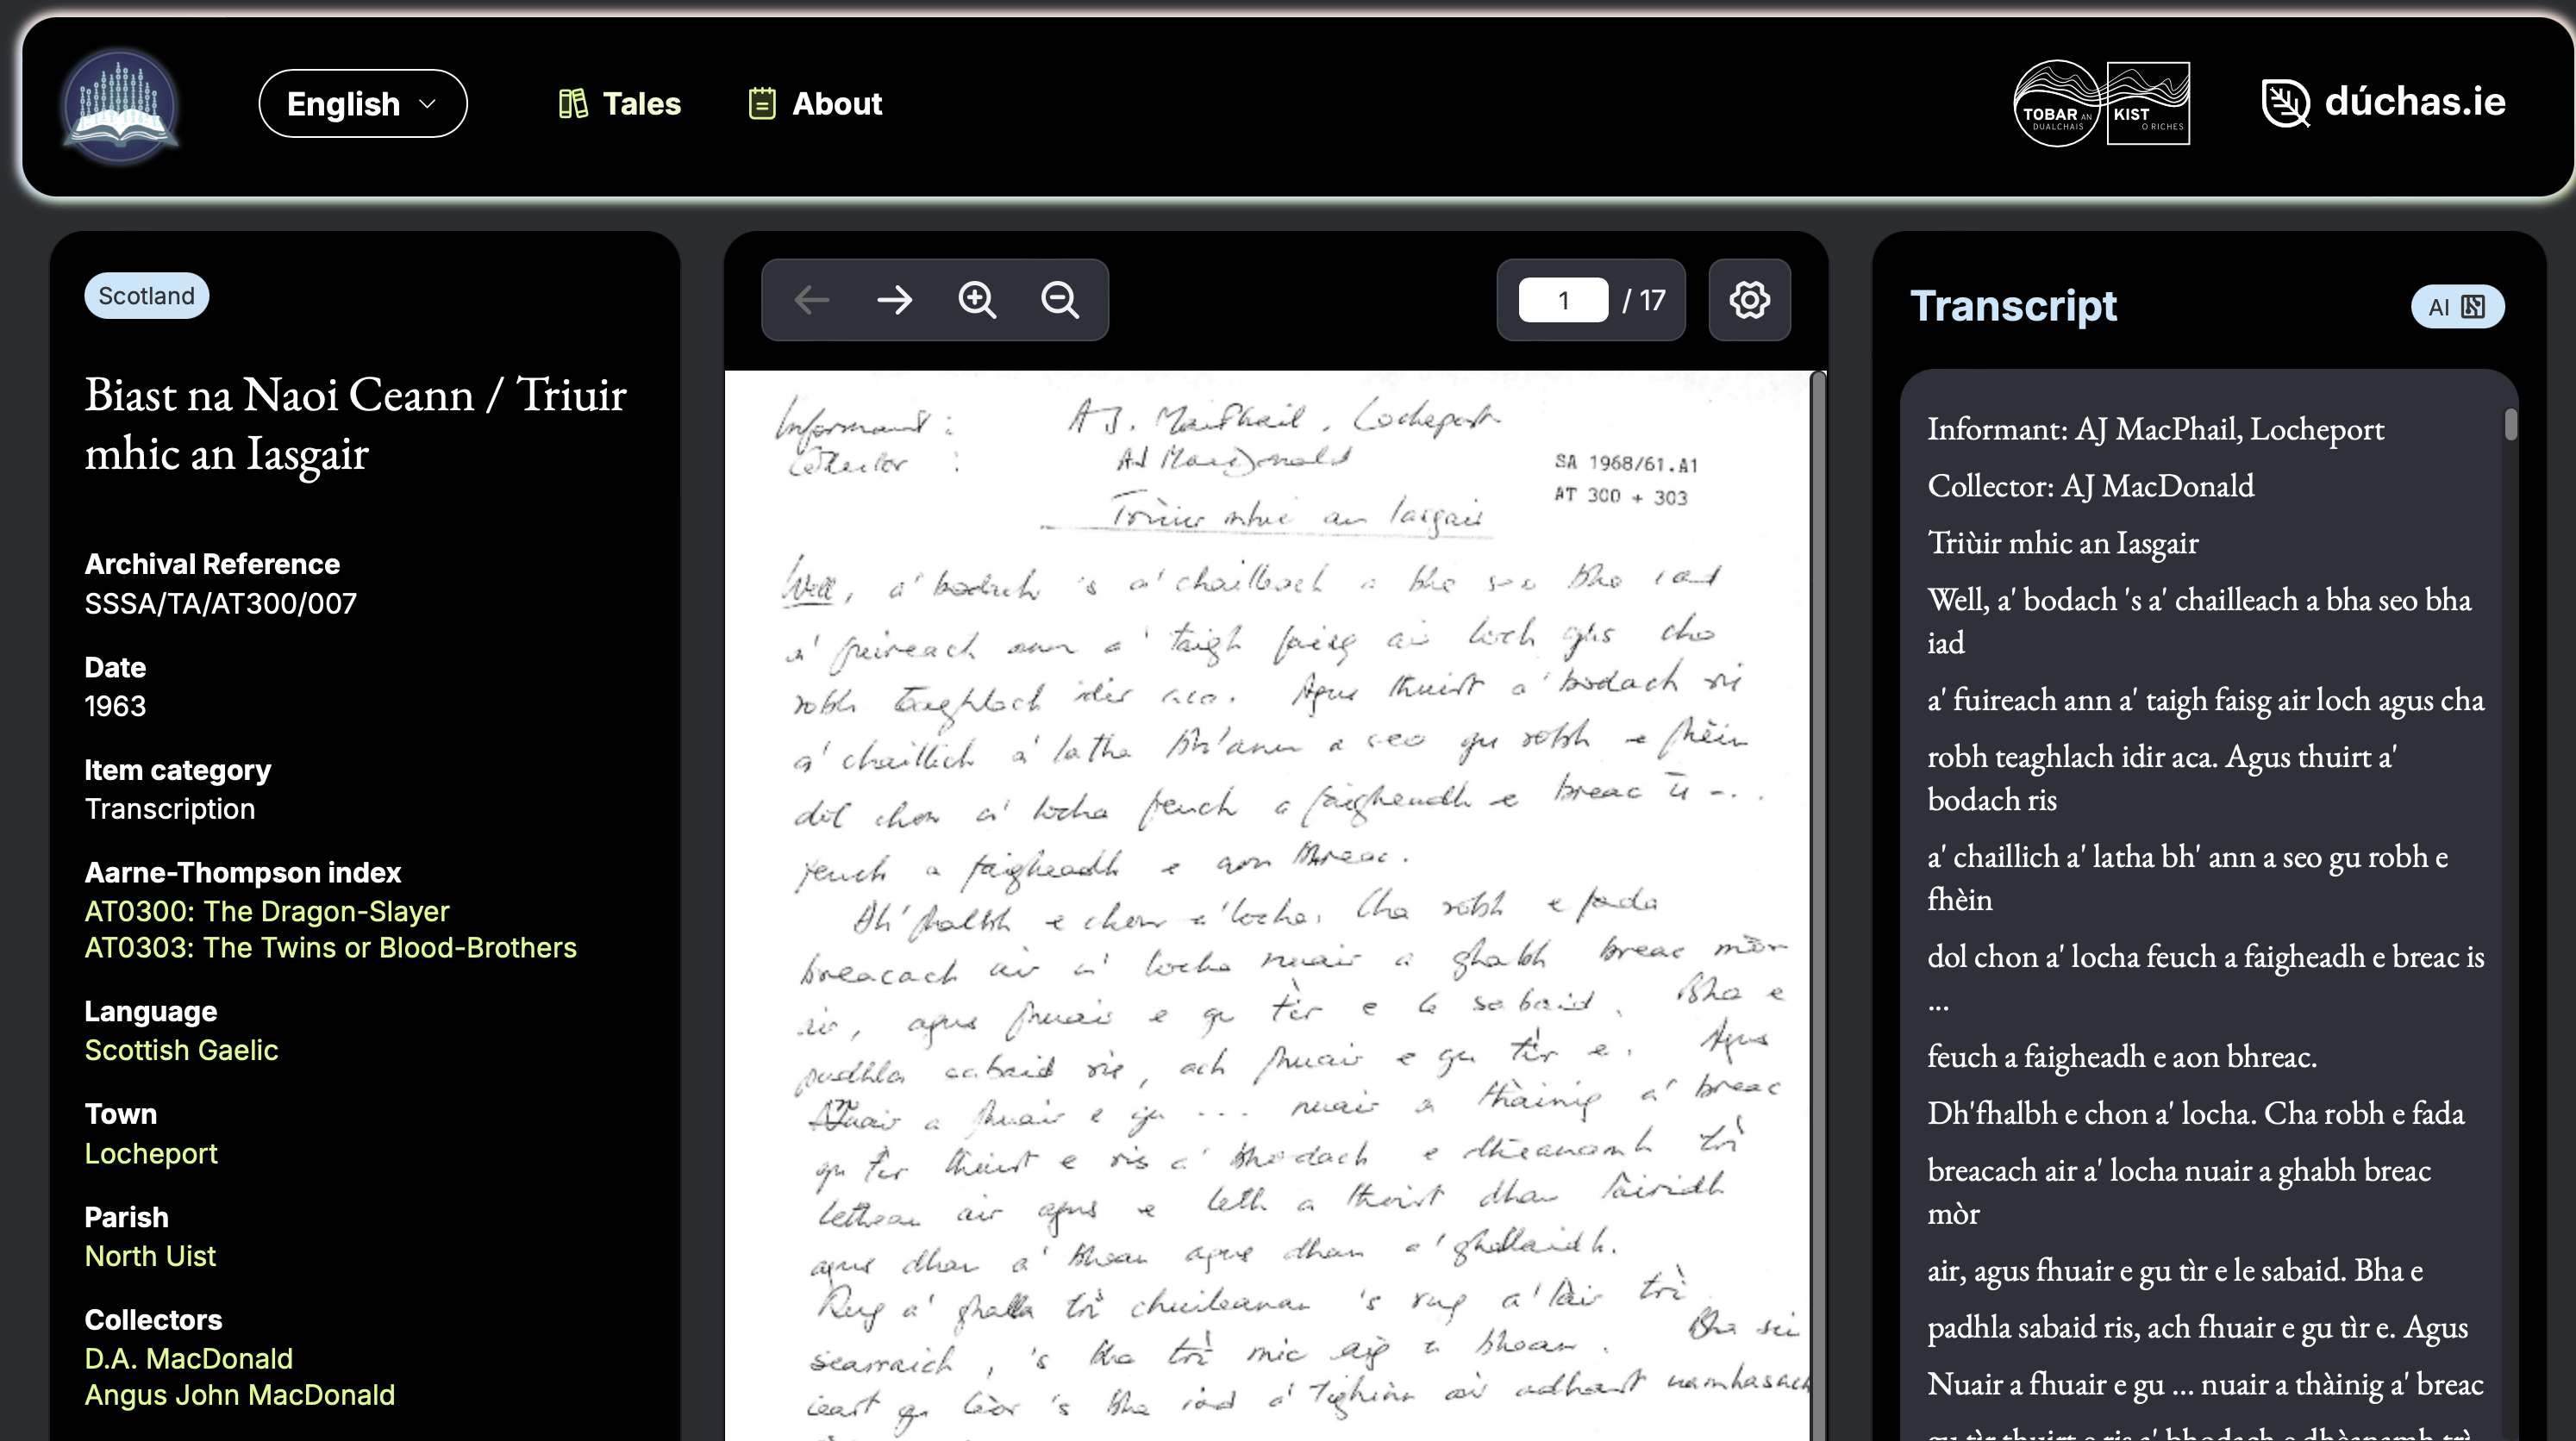 English
Tales
About
TOBAR AN
DUALCHAIS
KIST
O RICHES
dúchas.ie
Scotland
Biast na Naoi Ceann / Triuir
mhic an Iasgair
Archival Reference
SSSA/TA/AT300/007
Date
1963
Item category
Transcription
Aarne-Thompson index
AT0300: The Dragon-Slayer
AT0303: The Twins or Blood-Brothers
Language
Scottish Gaelic
Town
Locheport
Parish
North Uist
Collectors
D.A. MacDonald
Angus John MacDonald
1 / 17
Informant : A J. MacPhail, Locheport
Collector : AJ MacDonald
SA 1968/61.A1
AT 300 + 303
Triùir mhic an Iasgair
Well, a' bodach 's a' chailleach a bha seo bha iad
a' fuireach ann a' taigh faisg air loch agus cha
robh teaghlach idir aca. Agus thuirt a' bodach ris
a' chaillich a' latha bh'ann a seo gu robh e fhèin
dol chon a' locha feuch a faigheadh e breac ...
feuch a faigheadh e aon bhreac.
Dh'fhalbh e chon a' locha. Cha robh e fada
breacach air a' locha nuair a ghabh breac mòr
air, agus fhuair e gu tìr e le sabaid. Bha e
sabaid ris, ach fhuair e gu tìr e. Agus
Nuair a fhuair e gu ... nuair a thàinig a' breac
gu tìr thuirt e ris a' bhodach e dhèanamh trì
lethean air agus e leth a thoirt dhan làiridh
agus dhan a' bhean agus dhan a' ghallaidh.
Rug a' ghalla trì chuileanan 's rug a' làir trì
searraich, 's bha trì mic aig a bhean. Bha sin
ceart gu leòr 's bha iad a' tighinn air adhart uamhasach
Transcript
AI
Informant: AJ MacPhail, Locheport
Collector: AJ MacDonald
Triùir mhic an Iasgair
Well, a' bodach 's a' chailleach a bha seo bha
iad
a' fuireach ann a' taigh faisg air loch agus cha
robh teaghlach idir aca. Agus thuirt a'
bodach ris
a' chaillich a' latha bh' ann a seo gu robh e
fhèin
dol chon a' locha feuch a faigheadh e breac is
...
feuch a faigheadh e aon bhreac.
Dh'fhalbh e chon a' locha. Cha robh e fada
breacach air a' locha nuair a ghabh breac
mòr
air, agus fhuair e gu tìr e le sabaid. Bha e
padhla sabaid ris, ach fhuair e gu tìr e. Agus
Nuair a fhuair e gu ... nuair a thàinig a' breac
gu tìr thuirt e ris a' bhodach e dhèanamh trì